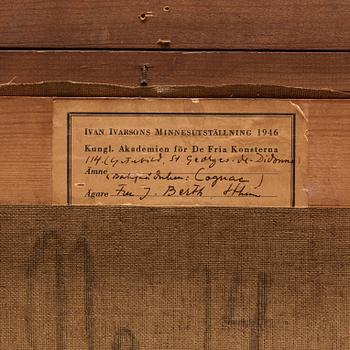 IVAN IVARSONS MINNESUTSTÄLLNING 1946
Kungl. Akademien för De Fria Konsterna
114. (Gatubild, St Georges-de-Didonne)
Ämne ( Cognac)
Ägare Fru J. Berth Sthm